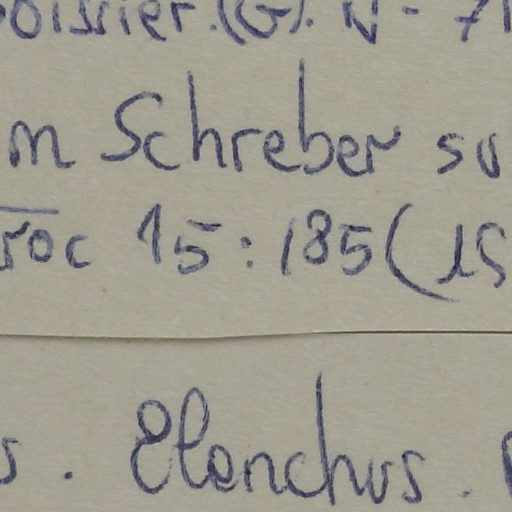 oissier. (G). N - 71
m Schreber su
roc 15 : 185 (15
s. Elenchus.